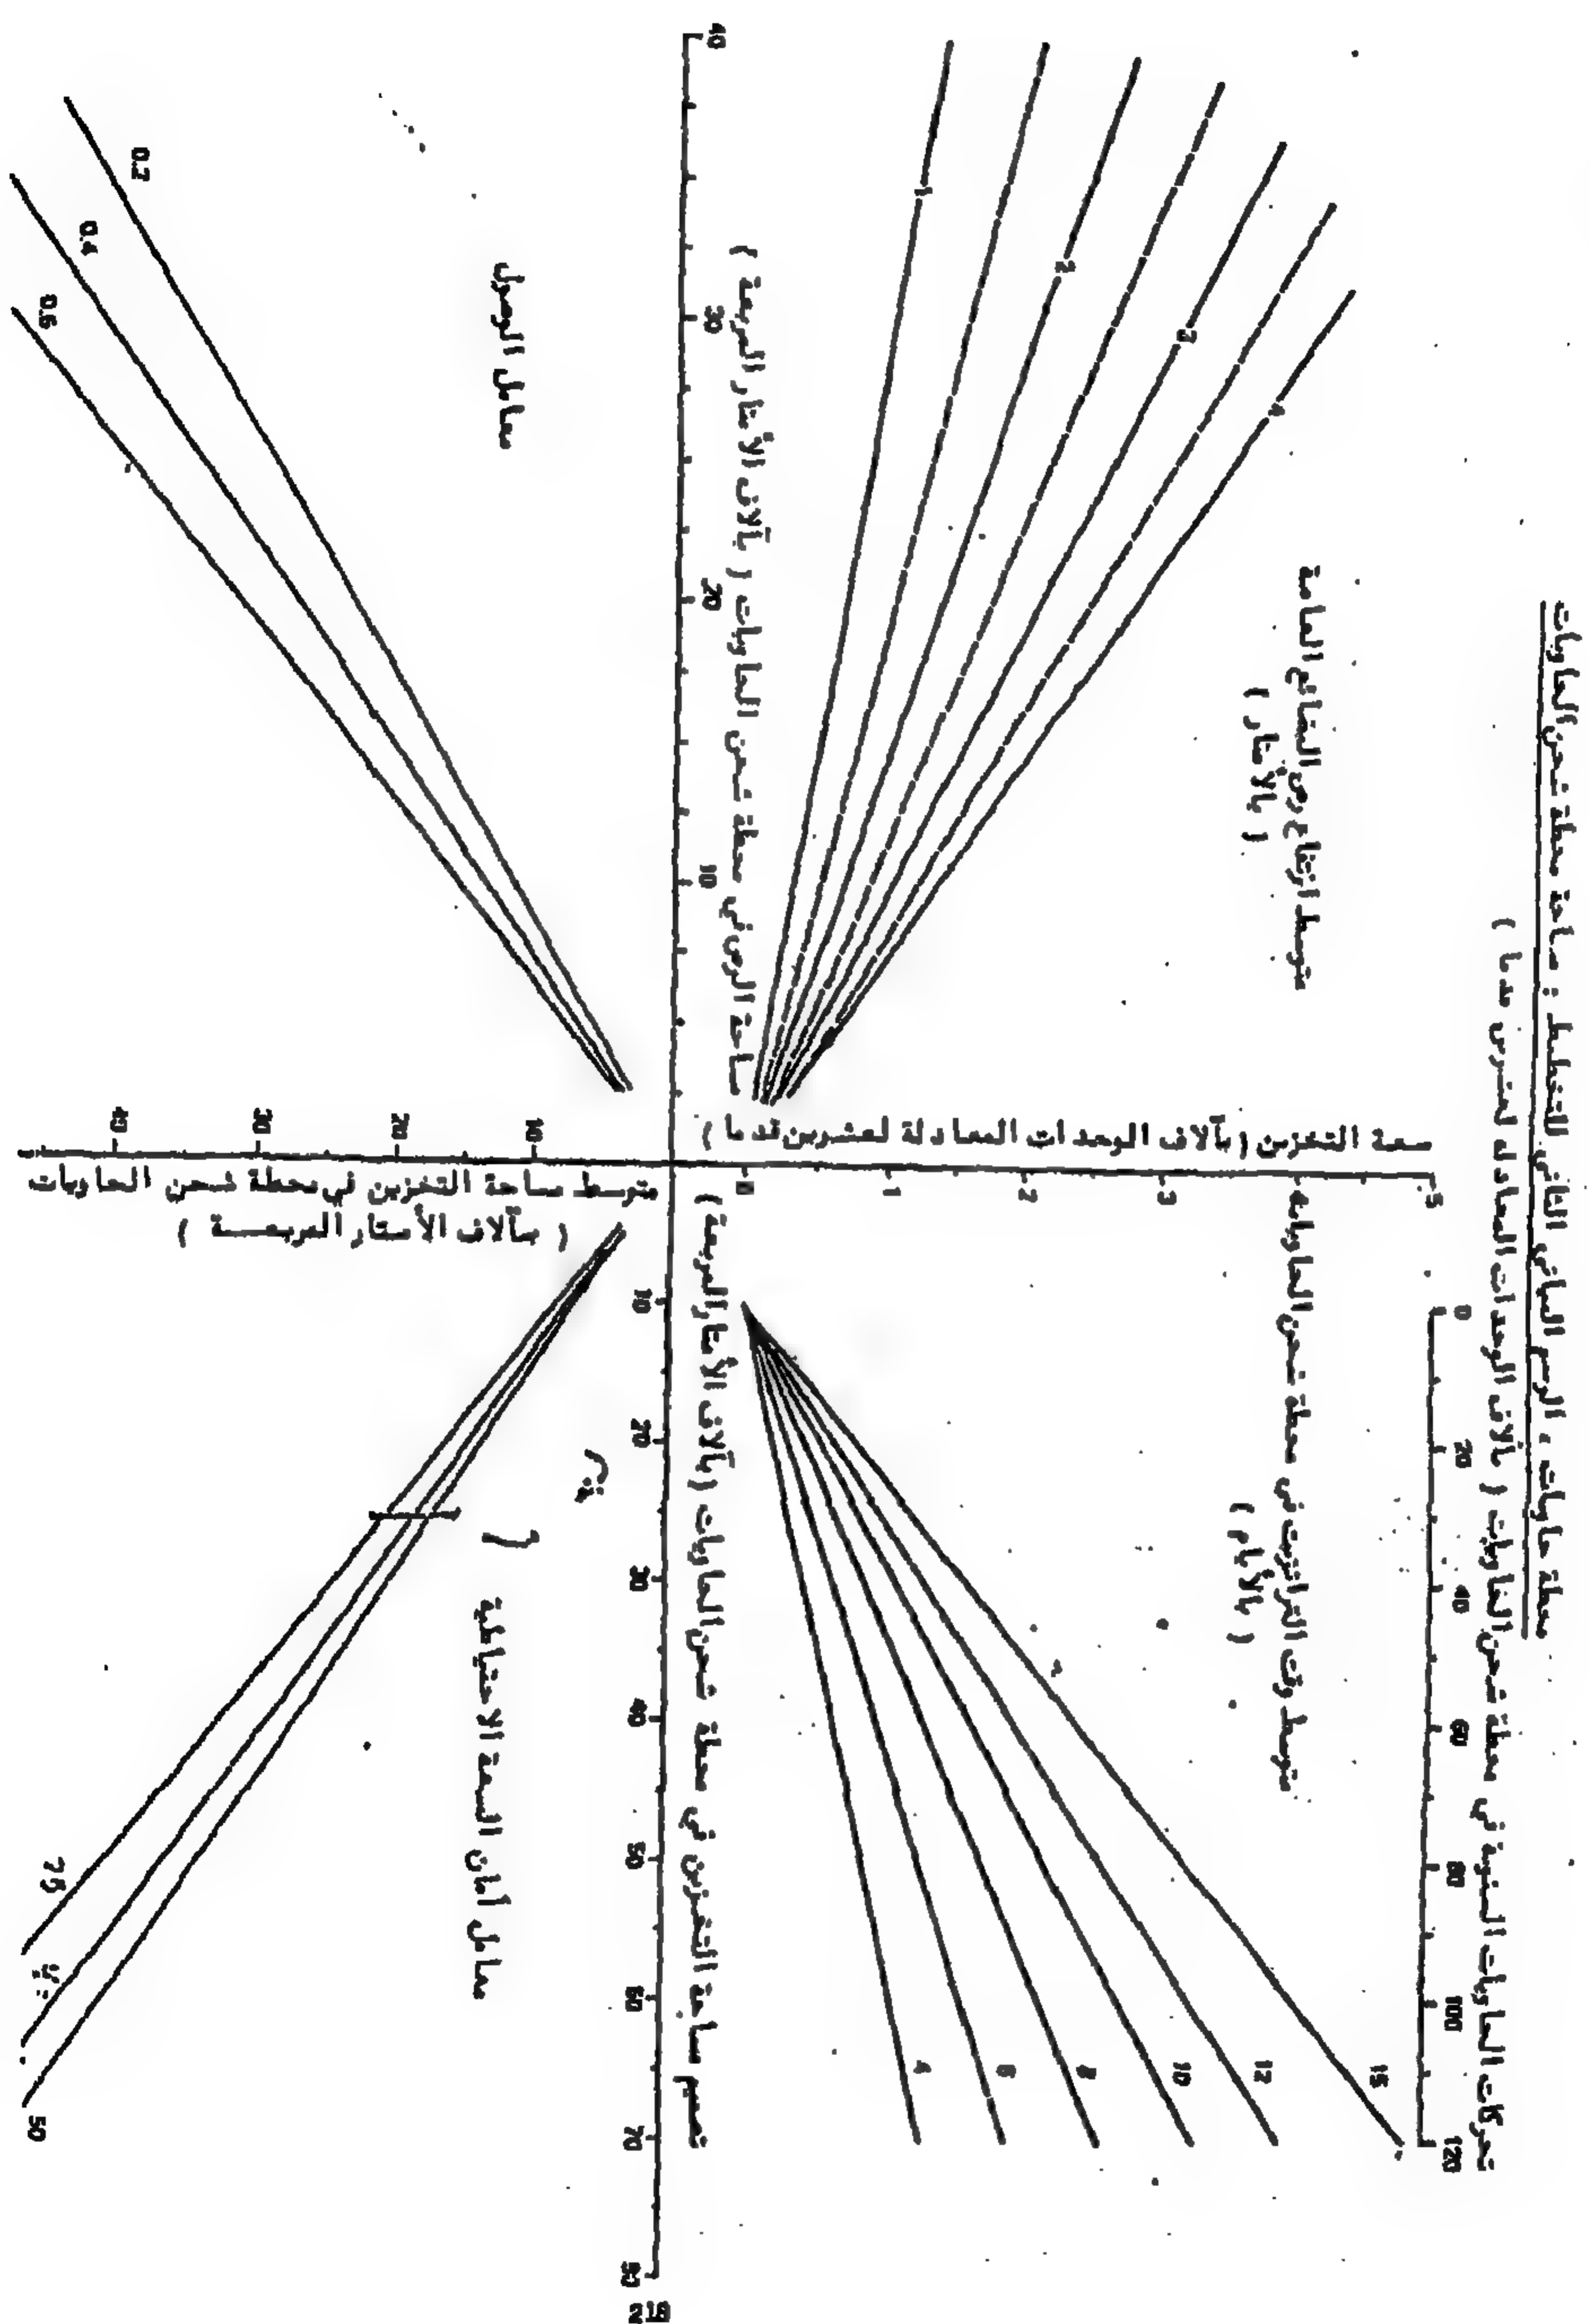 محطة حاويات ، الرسم البياني الثاني للتخطيط : مساحة محطة شحن الحاويات
تحركات الحاويات السنوية في محطة شحن الحاويات ( بآلاف الوحدات المعادلة لعشرين قدما )
0 20 40 60 80 100 120
متوسط ارتفاع رص البضائع العامة
( بالأمتار )
متوسط وقت الترانزيت في محطة شحن الحاويات
( بالأيام )
1
2
3
4
4
6
8
10
12
15
سعة التخزين ( بآلاف الوحدات المعادلة لعشرين قدما )
0 1 2 3 5
مساحة الرص في محطة شحن الحاويات ( بآلاف الأمتار المربعة )
40 30 20 10
تصميم مساحة التخزين في محطة شحن الحاويات ( بآلاف الأمتار المربعة )
10 20 30 40 50 60 70
متوسط مساحة التخزين في محطة شحن الحاويات
( بآلاف الأمتار المربعـــة )
10 20 30 40
معامل الوصول
0.4
0.6
معامل أمان السعة الاحتياطية
25
50